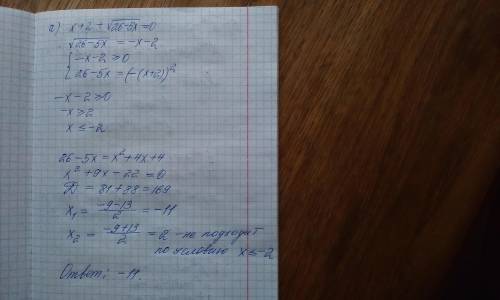 а) x+2+√(26-5x)=0
√(26-5x) = -x-2
{ -x-2≥0
{ 26-5x=(-(x+2))²
-x-2≥0
-x≥2
x≤-2
26-5x=x²+4x+4
x²+9x-22=0
D = 81+88=169
x₁ = (-9-13)/2 = -11
x₂ = (-9+13)/2 = 2 - не подходит
по условию x≤-2
Ответ: -11.